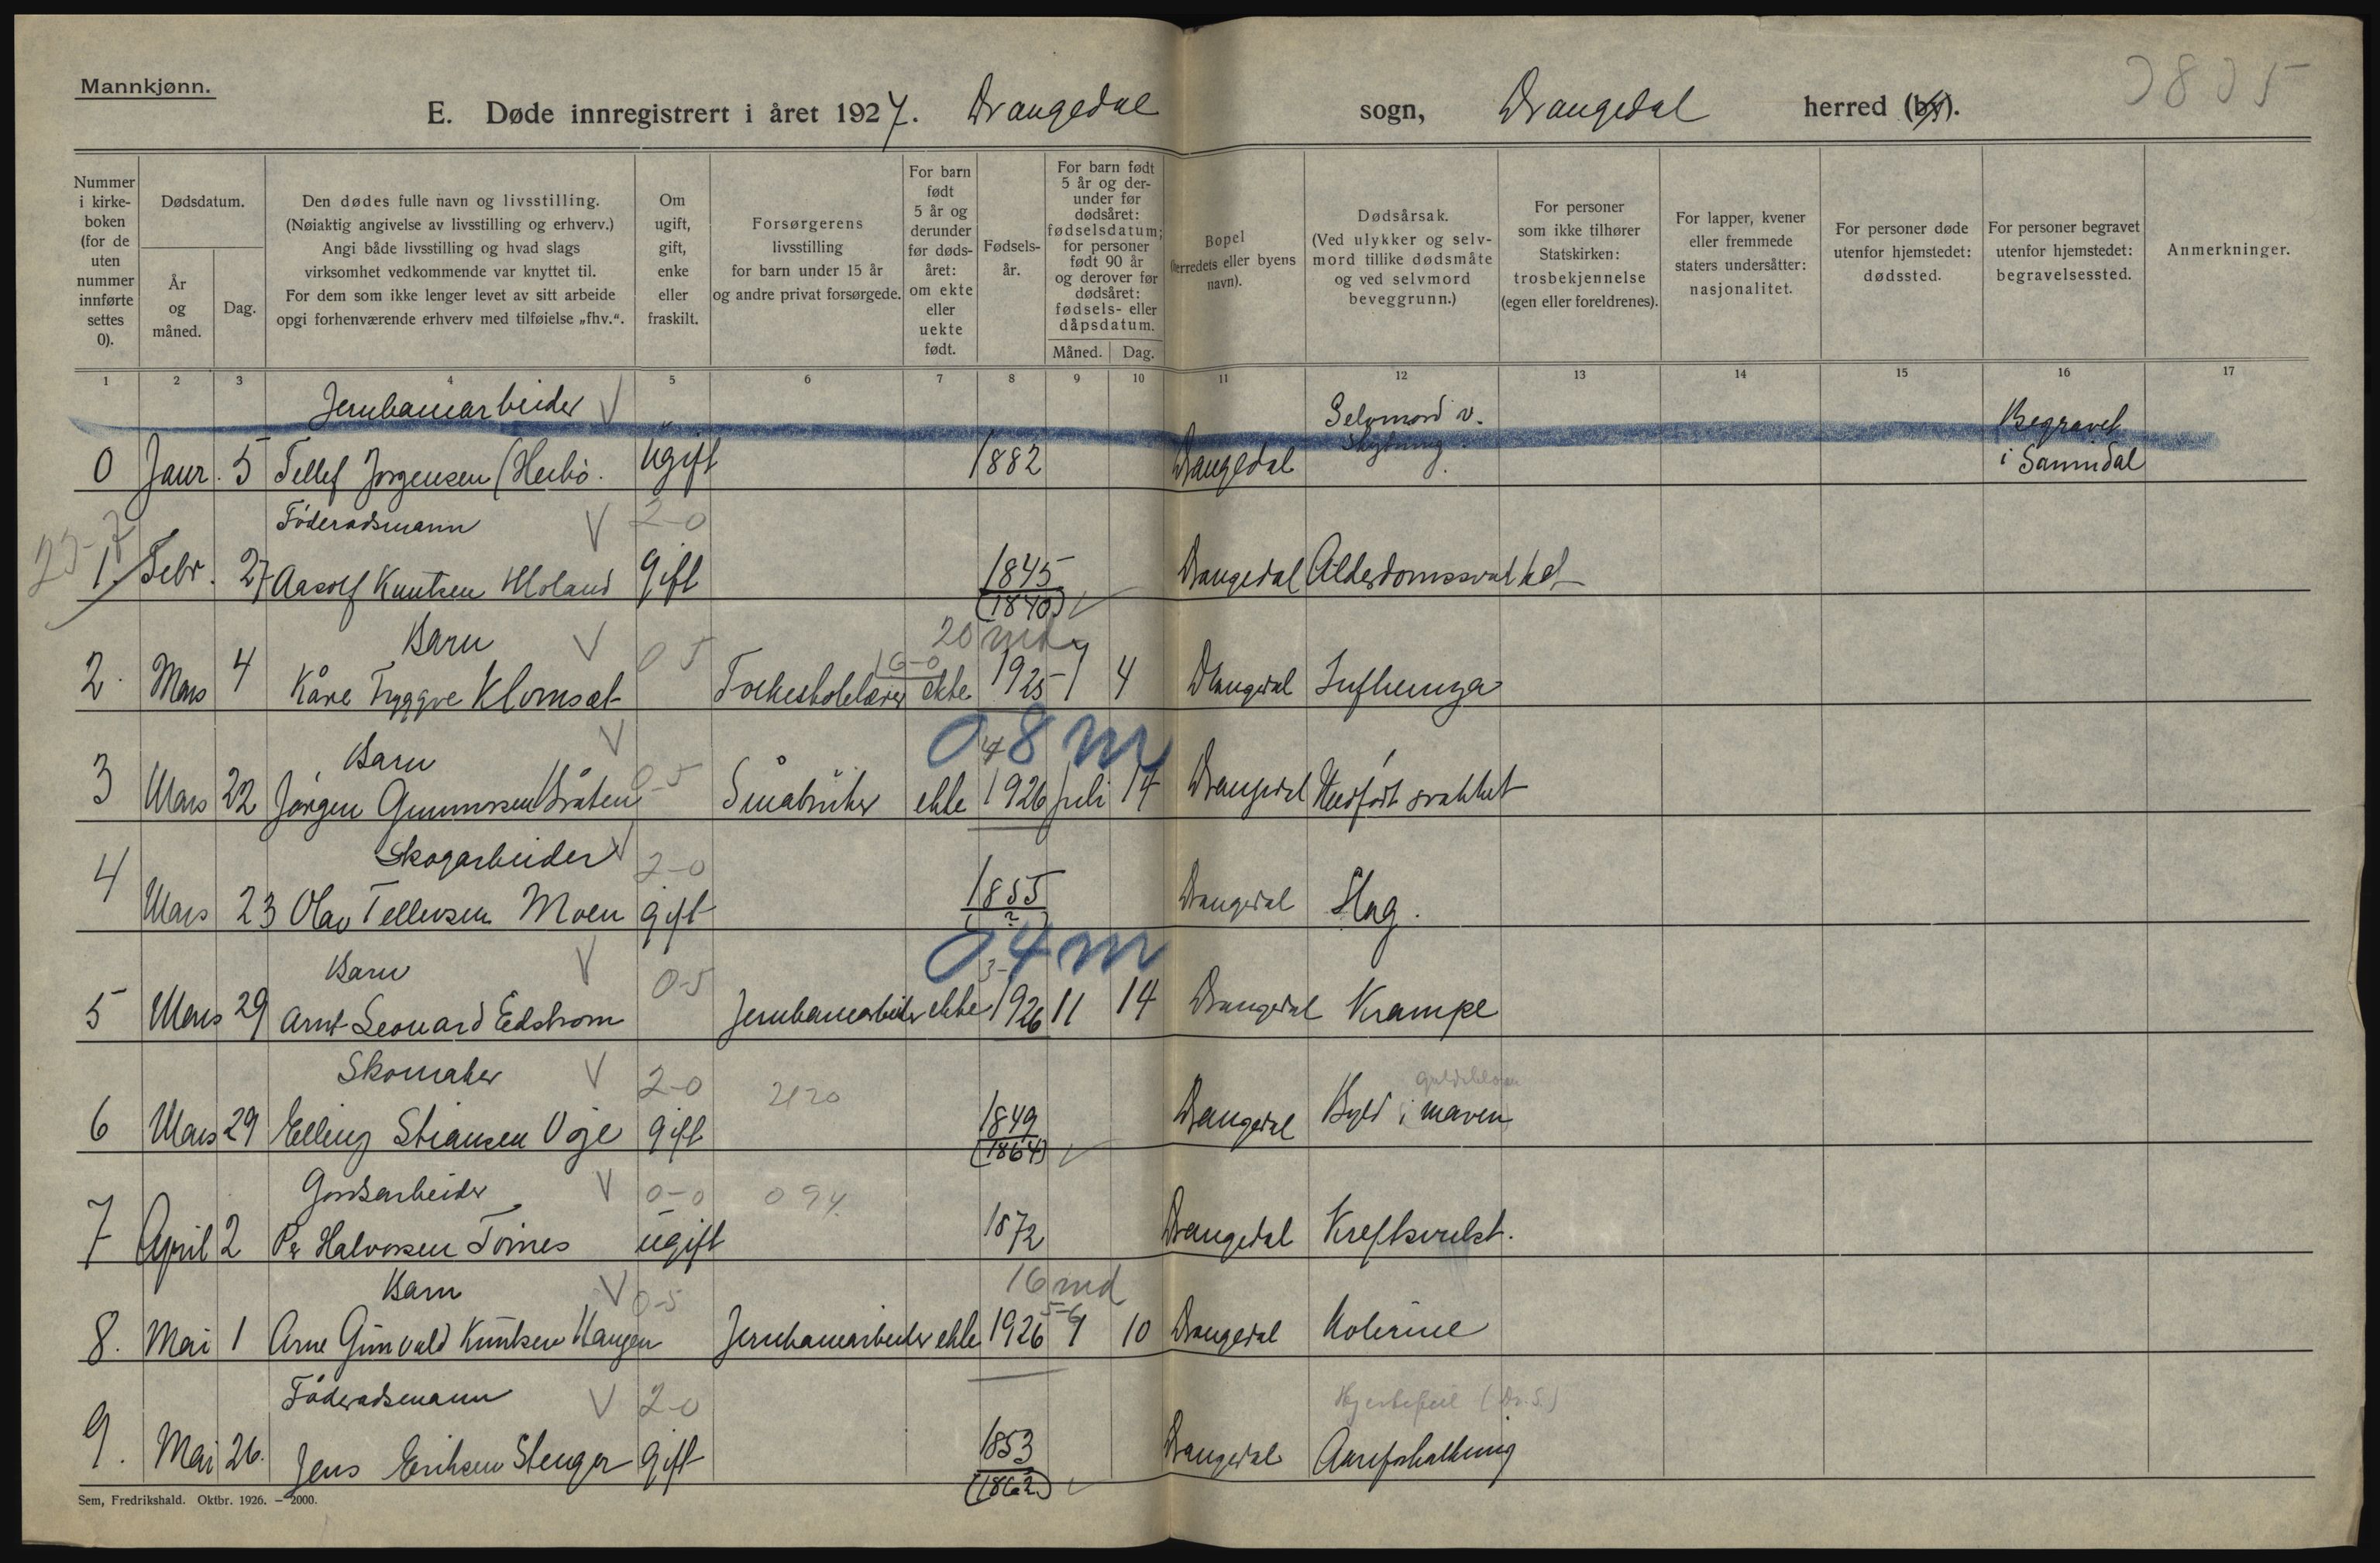 Mannkjønn.
E. Døde innregistrert i året 1927. Drangedal sogn, Drangedal herred (by).
Nummer i kirke-boken (for de uten nummer innførte settes 0).
Dødsdatum.
År og måned.
Dag.
Den dødes fulle navn og livsstilling.
(Nøiaktig angivelse av livsstilling og erhverv.)
Angi både livsstilling og hvad slags
virksomhet vedkommende var knyttet til.
For dem som ikke lenger levet av sitt arbeide
opgi forhenværende erhverv med tilføielse „fhv.“.
Om ugift, gift, enke eller fraskilt.
Forsørgerens
livsstilling
for barn under 15 år
og andre privat forsørgede.
For barn født 5 år og derunder før døds-året: om ekte eller uekte født.
Fødsels-år.
For barn født 5 år og der-under før dødsåret: fødselsdatum; for personer født 90 år og derover før dødsåret: fødsels- eller dåpsdatum.
Måned. Dag.
Bopel
(herredets eller byens
navn).
Dødsårsak.
(Ved ulykker og selv-
mord tillike dødsmåte
og ved selvmord
beveggrunn.)
For personer
som ikke tilhører
Statskirken:
trosbekjennelse
(egen eller foreldrenes).
For lapper, kvener
eller fremmede
staters undersåtter:
nasjonalitet.
For personer døde
utenfor hjemstedet:
dødssted.
For personer begravet
utenfor hjemstedet:
begravelsessted.
Anmerkninger.
1 2 3 4 5 6 7 8 9 10 11 12 13 14 15 16 17
Jernbanearbeider V Selvmord v. Begravet
0 Janr. 5 Tellef Jørgensen Ugift 1882 Drangedal Skytning. i Sannidal
Føderadsmann V 2-0
1. Febr. 27 Aasolf Knutsen Gift 1845 Drangedal Alderdomssvakhet
(1840)
Barn V 0 5 20 md
2. Mars 4 Kåre Tryggve Folkeskolelærer ekte 1925 7 4 Drangedal Influenza
16-0
Barn V 0-5 0 8 m
3 Mars 22 Jørgen Gunnarsen Bråten Småbruker ekte 1926 juli 14 Drangedal Medfødt svakhet
Skogarbeider V 2-0
4 Mars 23 Olav Tellefsen Moen gift 1855 Drangedal Slag.
(?)
Barn V 0-5 0 4 m
5 Mars 29 Arnt Leonard Edstrom Jernbanearbeider ekte 1926 11 14 Drangedal Krampe
Skomaker V 2-0 2120
6 Mars 29 Elling Stiansen Voje gift 1849 Drangedal Byld i maven
(1864)
Gårdsarbeider V 0-0 094
7 April 2 Pr Halvorsen Tornes ugift 1872 Drangedal Kreftsvulst.
Barn V 0-5 16 md
8. Mai 1 Arne Gunvald Knutsen Haugen Jernbanearbeider ekte 1926 10 Drangedal Kolerine
Føderadsmann V 2-0 Hjertefeil (Dr. S.)
9. Mai 26. Jens Eriksen Stenger gift 1853 Drangedal Aareforkalkning
(1862)
Sem, Fredrikshald. Oktbr. 1926. – 2000.